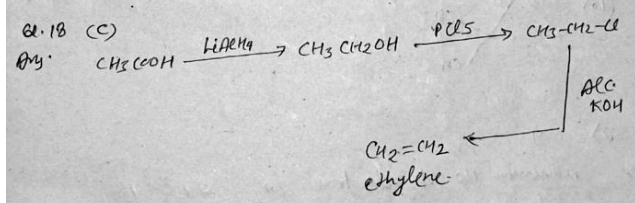 Q. 18 (C)
Ans. CH3COOH LiAlH4 → CH3CH2OH PCl5 → CH3-CH2-Cl
Alc. KOH
CH2=CH2
ethylene.